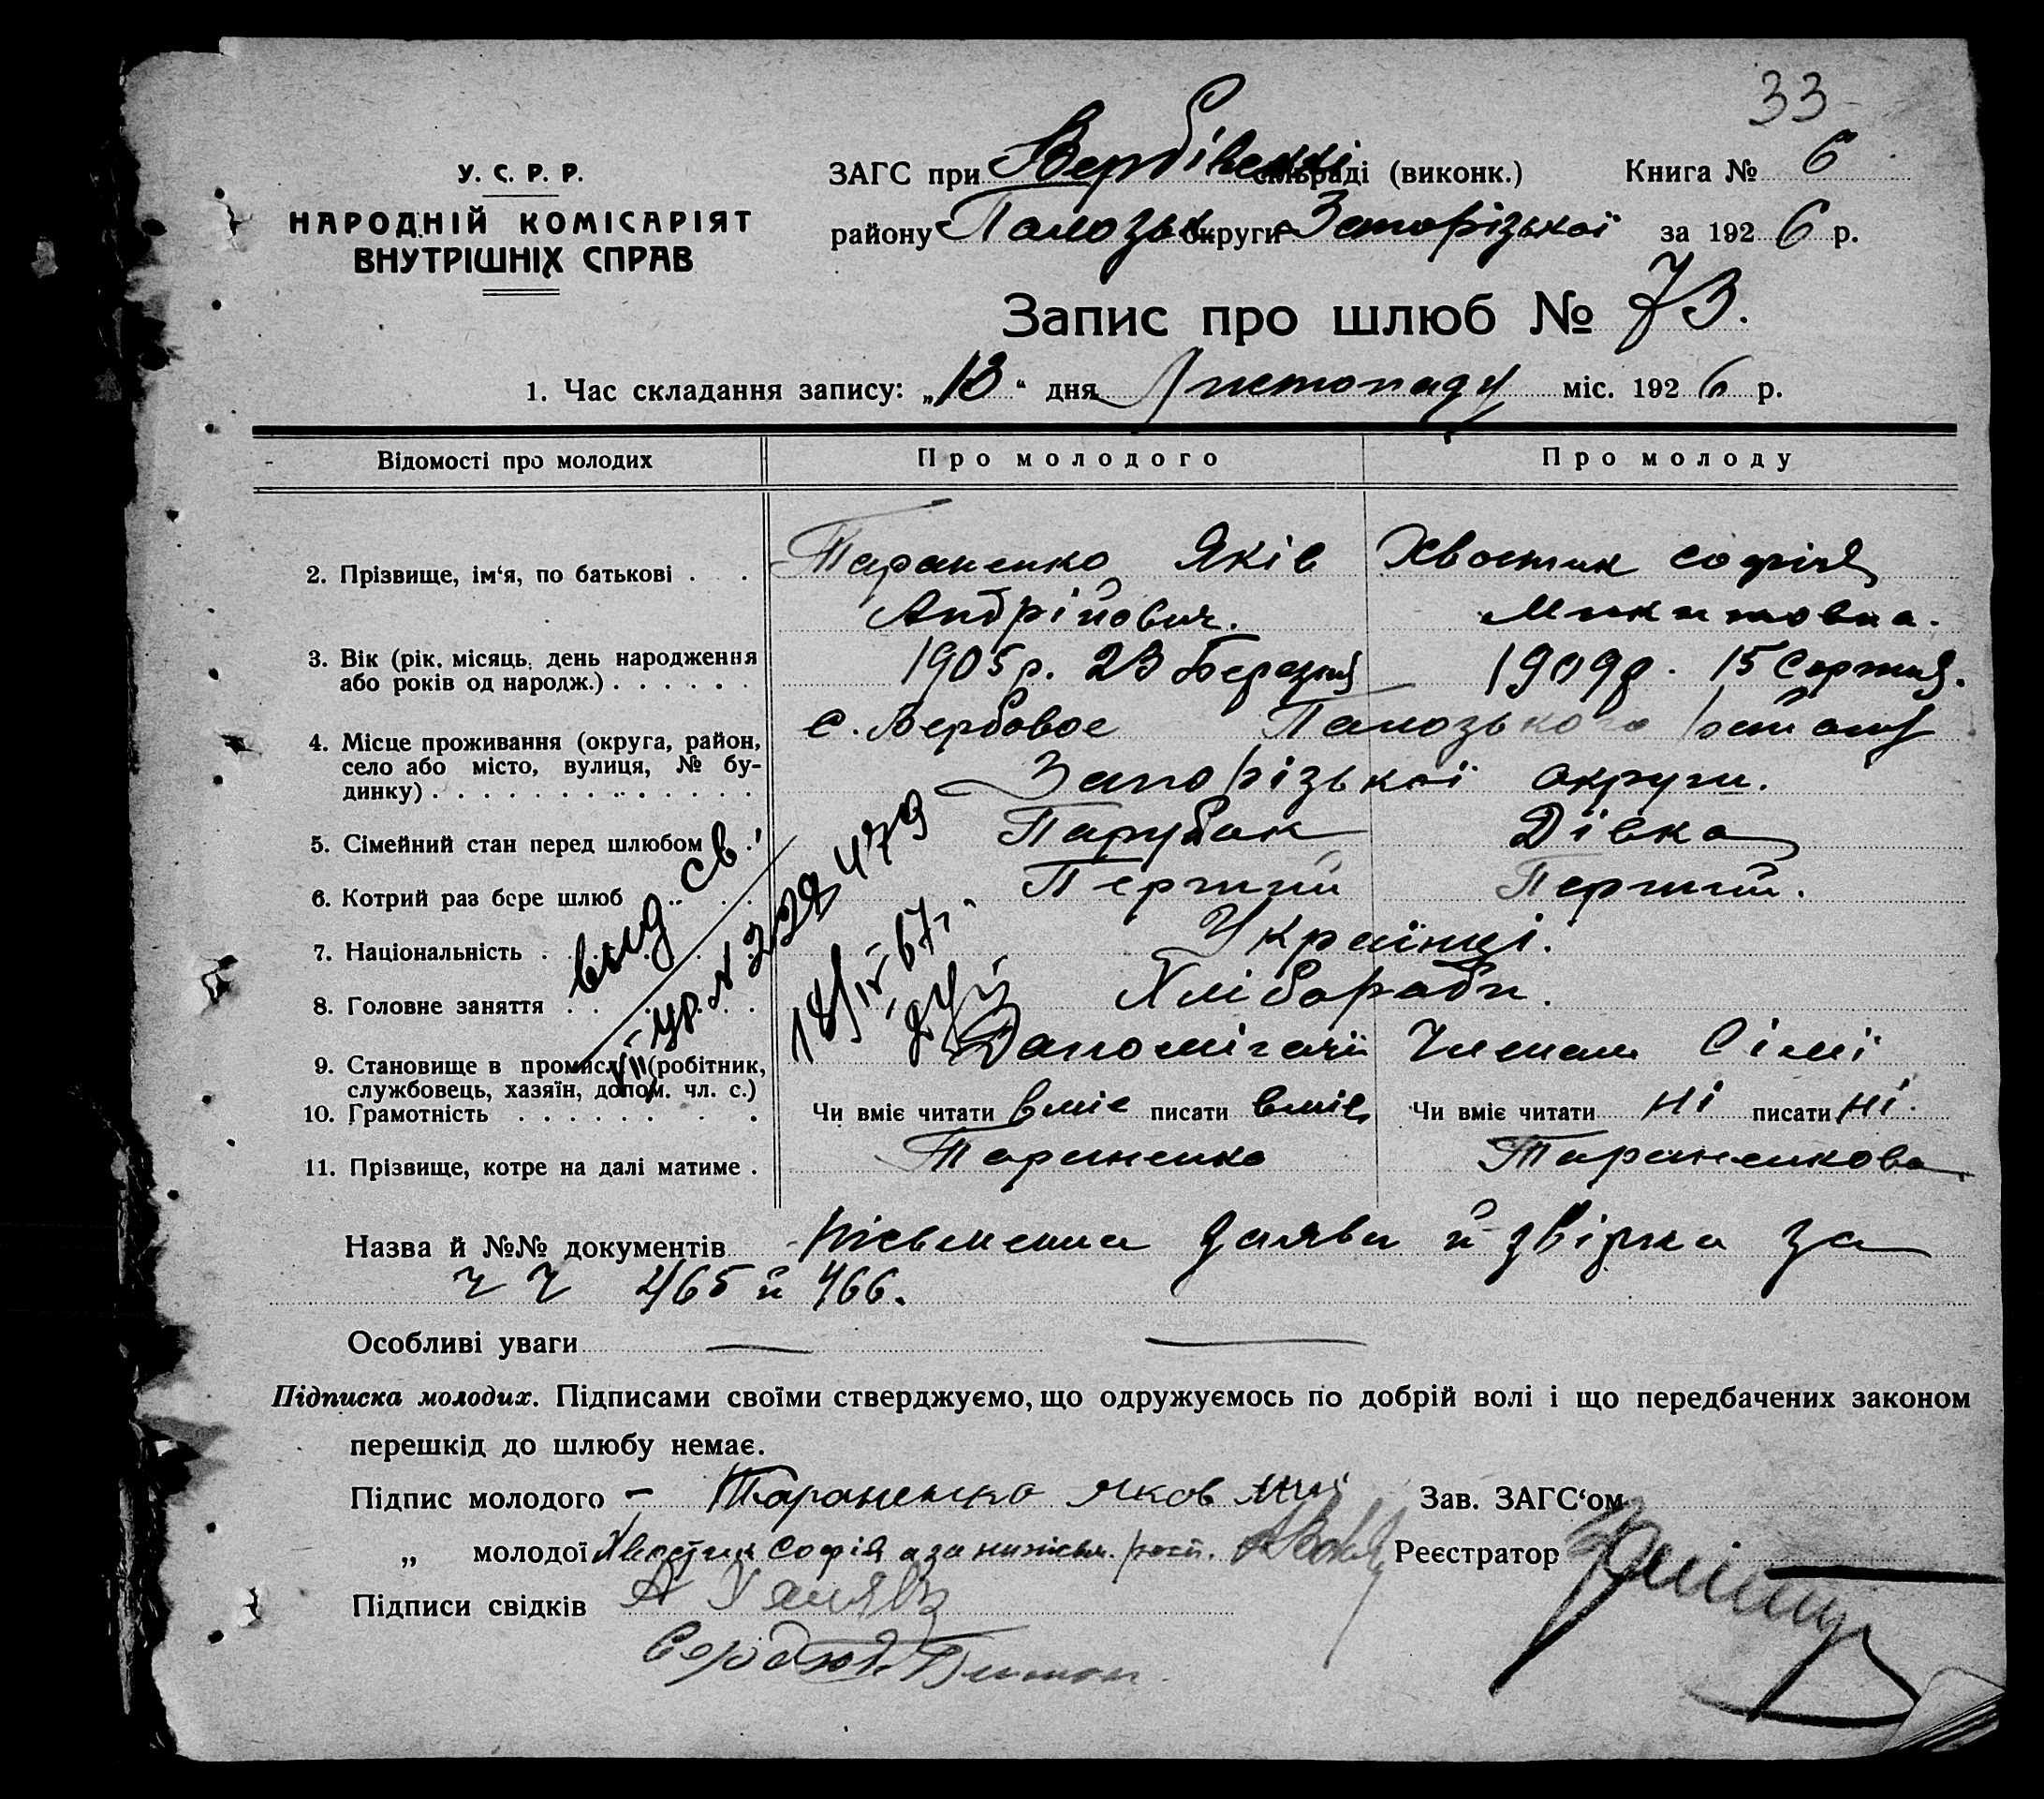 33
У. С. Р. Р.
НАРОДНІЙ КОМІСАРІЯТ
ВНУТРІШНІХ СПРАВ
ЗАГС при Вербівські сільраді (виконк.) Книга № 6
району Пологзьк округи Запорізької за 1926 р.
Запис про шлюб № 73.
1. Час складання запису: „13“ дня Листопаду міс. 1926 р.
Відомості про молодих Про молодого Про молоду
2. Прізвище, ім‘я, по батькові . . Тараненко Яків Хвостик Софія
Андрійович. Микитовна.
3. Вік (рік, місяць, день народження або років од народж.) . . . . . . 1905 р. 23 Березня 1909 р. 15 Серпня.
4. Місце проживання (округа, район, село або місто, вулиця, № будинку) . . . . . . . . . . . . . с. Вербовое Пологзького району
Запорізької округи.
5. Сімейний стан перед шлюбом . Парубок Дівка
6. Котрий раз бере шлюб . . . Перший Перший.
7. Національність . . . . . Українці.
8. Головне заняття . . . . . Хлібороби.
9. Становище в промислі (робітник, службовець, хазяїн, допом. чл. с.) Допомігачи Членам Сімї
10. Грамотність . . . . . . . . Чи вміє читати вміє писати вміє Чи вміє читати ні писати ні.
11. Прізвище, котре на далі матиме . Тараненко Тараненкова
вид св.
18/IV-67г.
Назва й №№ документів письменна заява й звірка за
ч ч 465 й 466.
Особливі уваги
Підписка молодих. Підписами своїми стверджуємо, що одружуємось по добрій волі і що передбачених законом
перешкід до шлюбу немає.
Підпис молодого – Тараненко Яков Зав. ЗАГС‘ом
„ молодої Хвостик Софія а за Реєстратор
Підписи свідків А